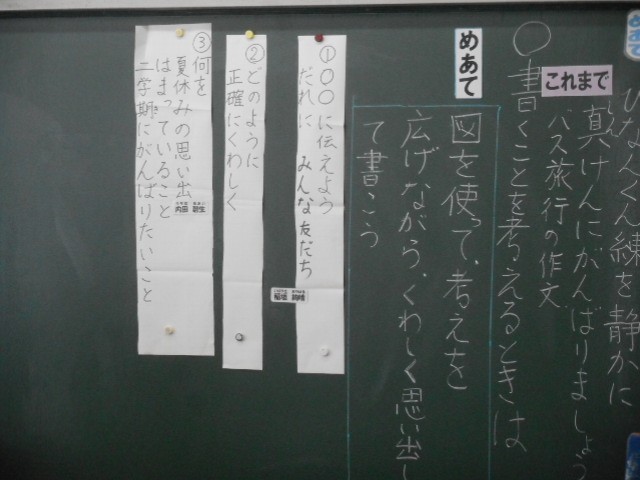 ひなんくん練を静かに
真けんにがんばりましょう
これまで
バス旅行の作文
○書くことを考えるときは
めあて
図を使って、考えを
広げながら、くわしく思い出し
て書こう
①○○に伝えよう
だれに みんな友だち
②どのように
正確にくわしく
③何を
夏休みの思い出
はまっていること
二学期にがんばりたいこと